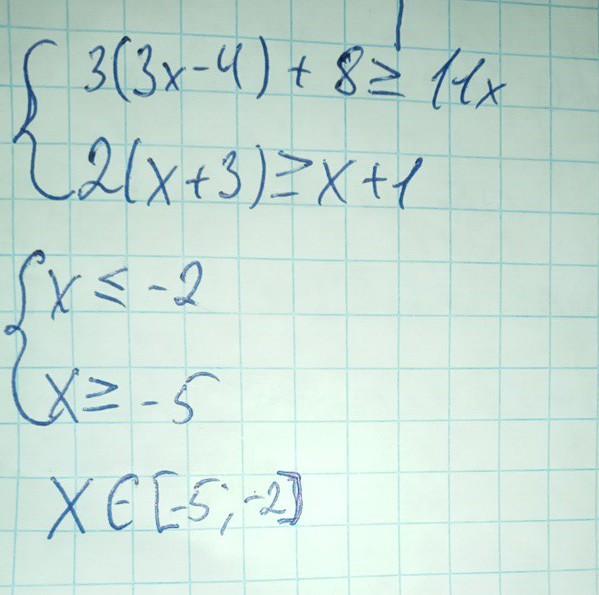 3(3x-4) + 8 ≥ 11x
2(x+3) ≥ x+1
x ≤ -2
x ≥ -5
X ∈ [-5; -2]